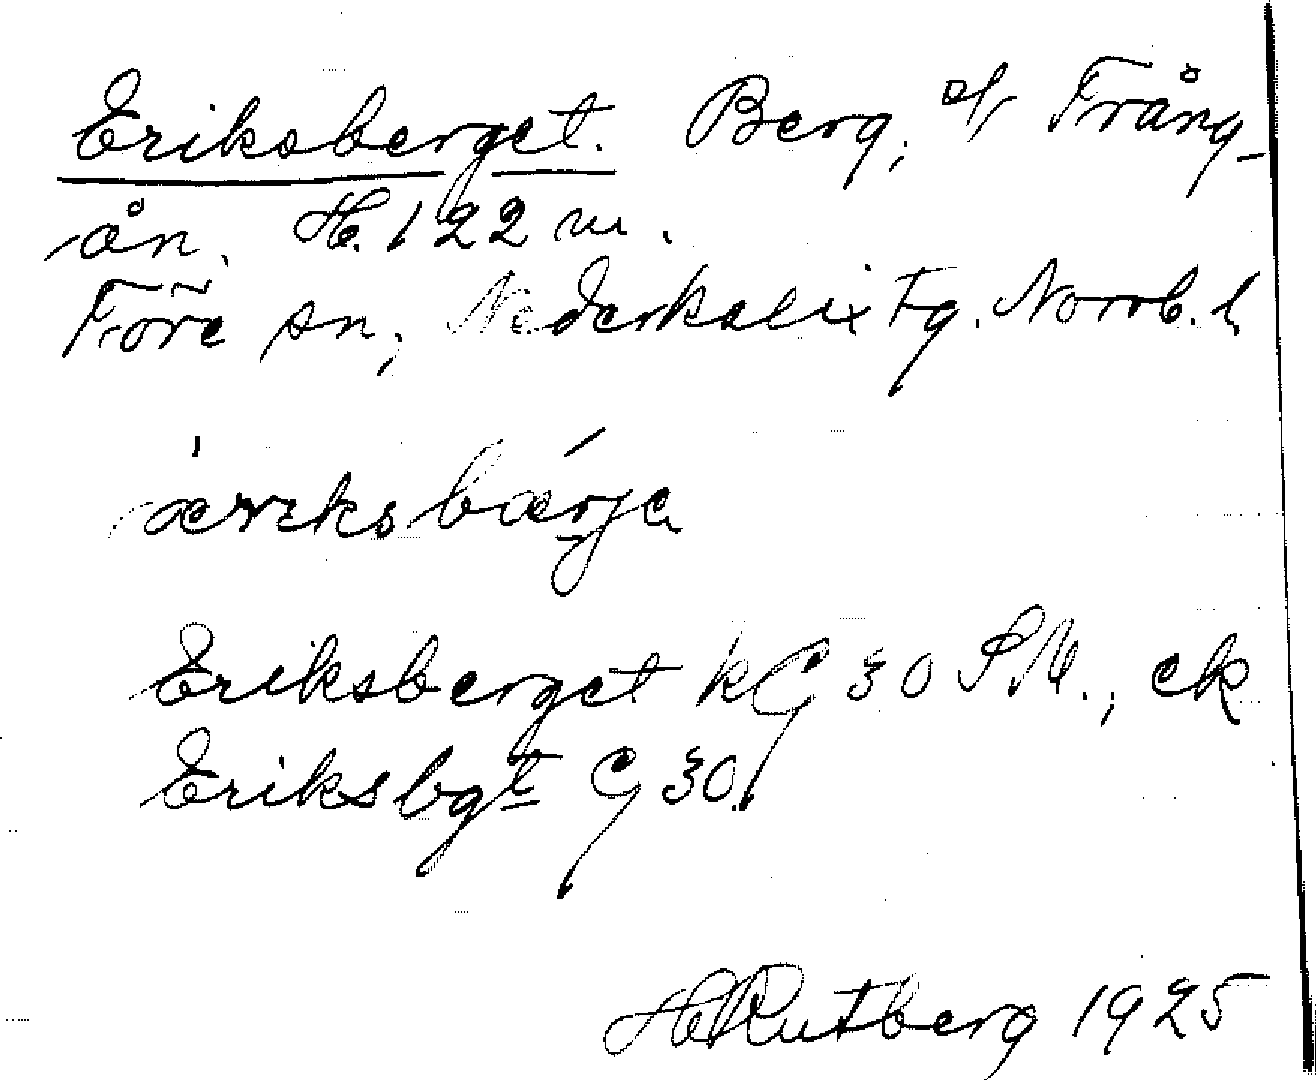 Eriksberget. Berg, v/ Trång-
ån. H. 122 m.
Töre sn, Nederkalix tg. Norrb. l.
æreksbærja
Eriksberget kG 30 S.M., ek
Eriksbgt G 30
H Rutberg 1925